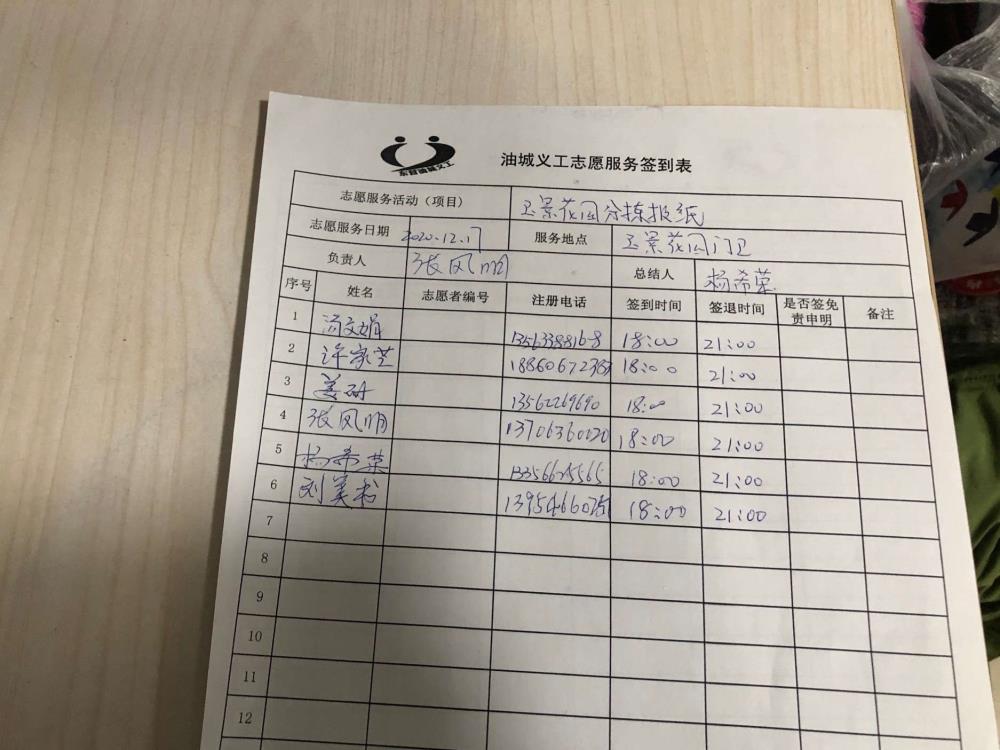 东营油城义工
油城义工志愿服务签到表
志愿服务活动（项目） 玉景花园分拣报纸
志愿服务日期 2020.12.17 服务地点 玉景花园门卫
负责人 张凤明 总结人 杨希荣
序号 姓名 志愿者编号 注册电话 签到时间 签退时间 是否签免责申明 备注
1 18:00 21:00
2 许家芝 18860672383 18:00 21:00
3 姜研 13562269690 18:00 21:00
4 张凤明 13706360020 18:00 21:00
5 杨希荣 13356625565 18:00 21:00
6 刘美书 18:00 21:00
7
8
9
10
11
12